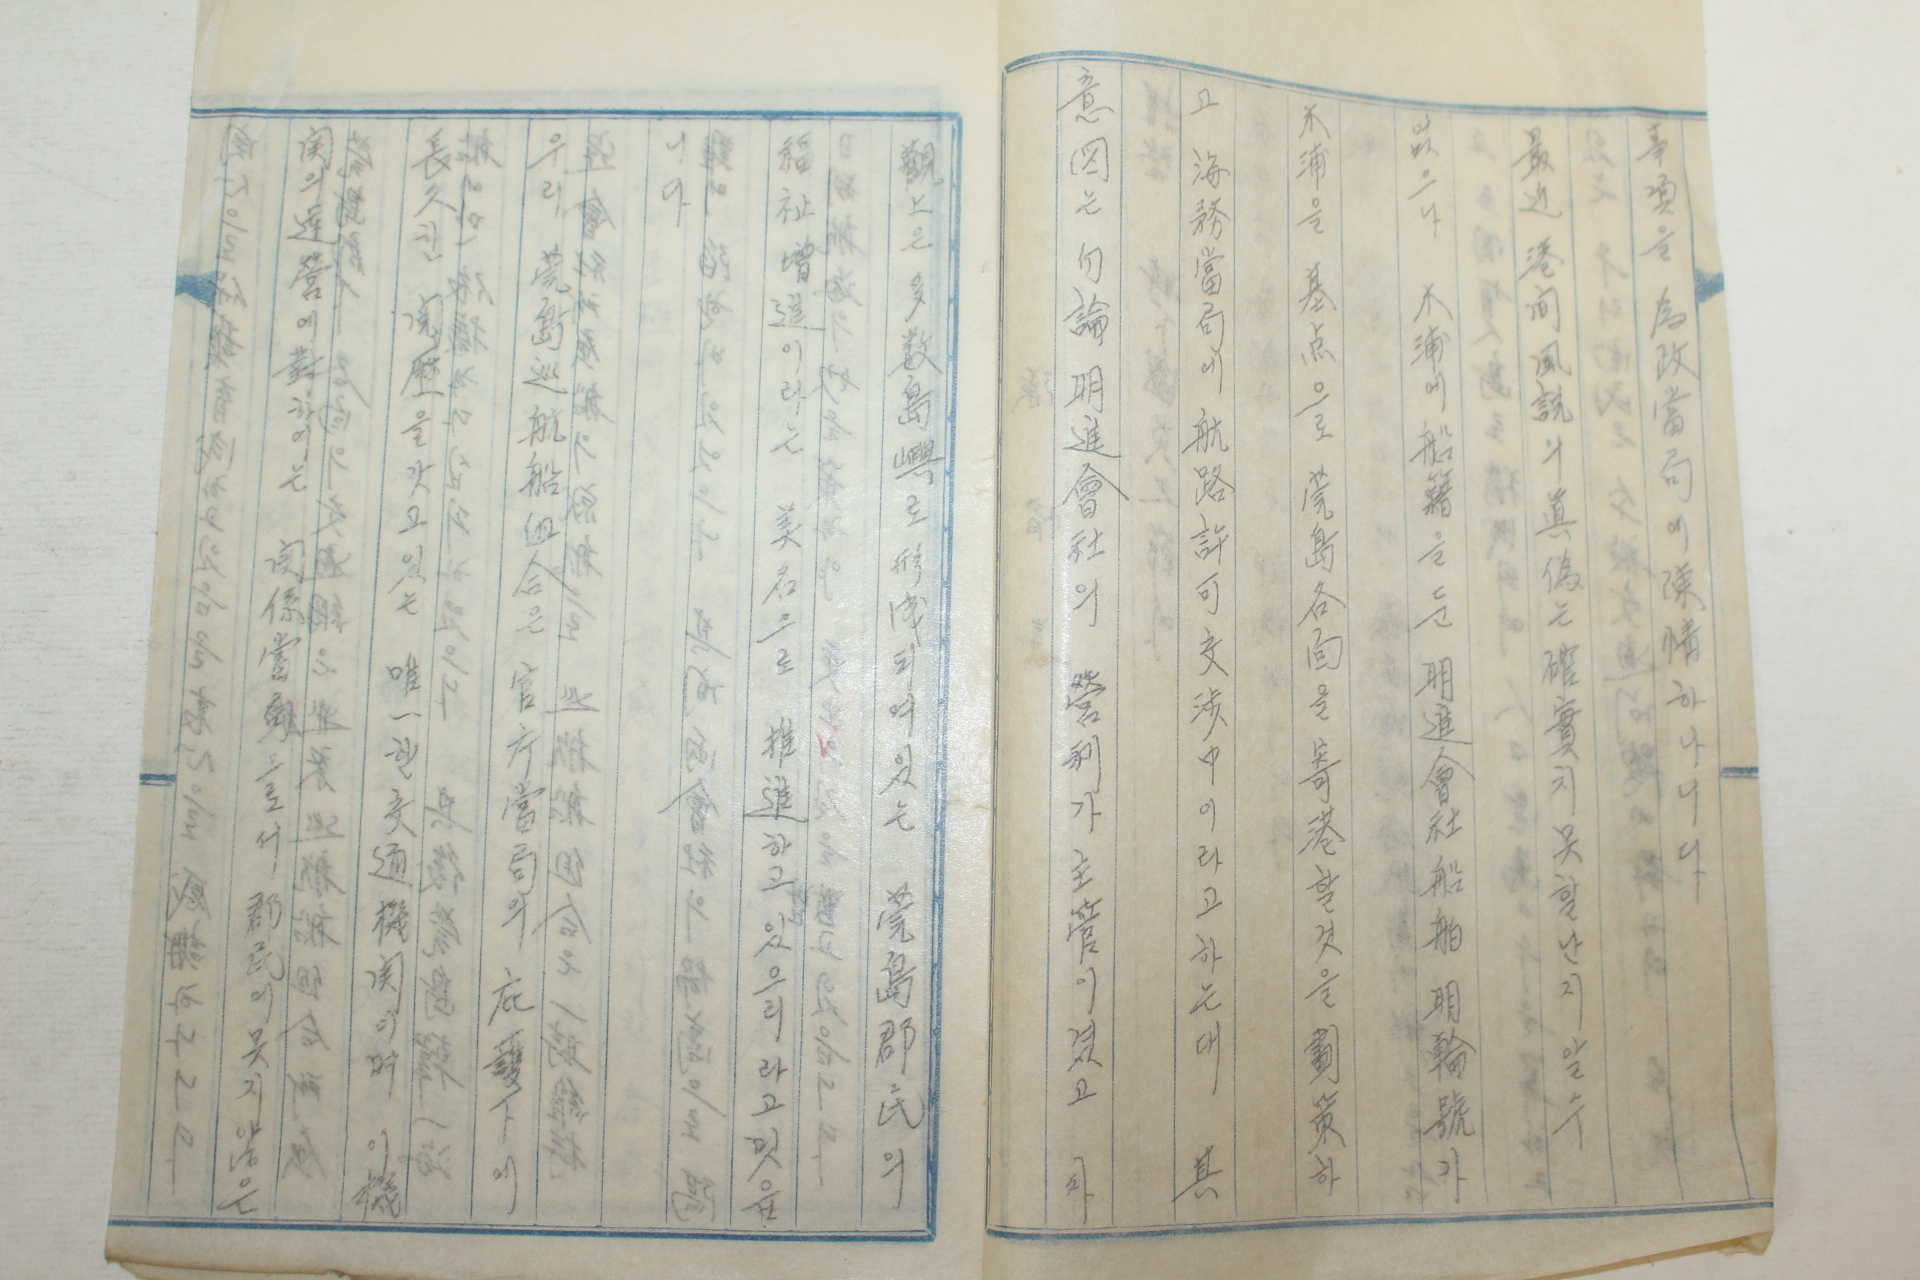 事項을 為政當局에 陳情하나니다
最近 港間風說의 眞僞는 確實치 못할난지 알수
없으나 木浦에 船籍을 둔 明進會社 船舶 明輪號가
木浦을 基点으로 莞島各面을 寄港할것을 劃策하
고 海務當局에 航路許可 交涉中이라고하는대 其
意図는 勿論 明進會社의 營利가 主管이겠고 外
觀上은 多數島嶼로 形成되여있는 莞島郡民의
福祉增進이라는 美名으로 推進하고있으리라고 믿음
니다
우리 莞島巡航船組合은 官庁當局의 庇護下에
長久한 関歷을 갓고있는 唯一한 交通機関이며 이機
関의 運營에 對하여는 関係當局으로서 郡民이 못지않은